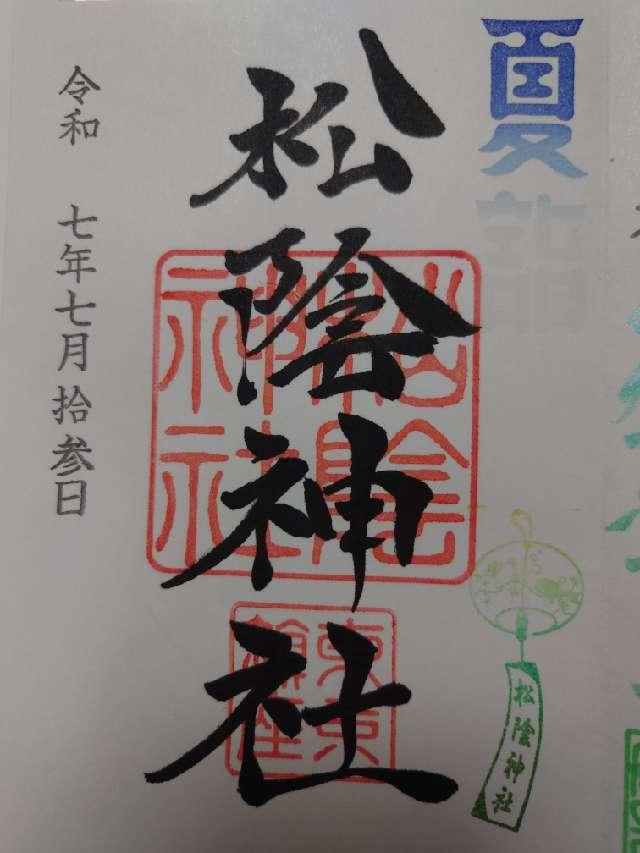 夏詣
松陰神社
松陰神社
東京
鎮座
松陰神社
令和 七年七月拾参日